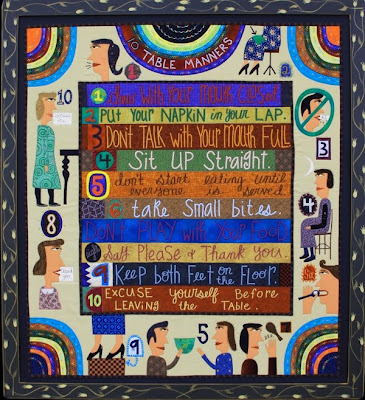 10 TABLE MANNERS
1 Chew with Your Mouth Closed.
2 Put Your NAPKIN in Your LAP.
3 DON'T TALK with Your MOUTH FULL
4 Sit UP Straight.
5 don't start eating until everyone is served.
6 take Small bites.
DON'T PLAY with Your Food.
Say Please & Thank You.
9 Keep both Feet on the Floor.
10 EXCUSE Yourself Before
LEAVING the TABLE.
1
2
10
3
8
4
9
5